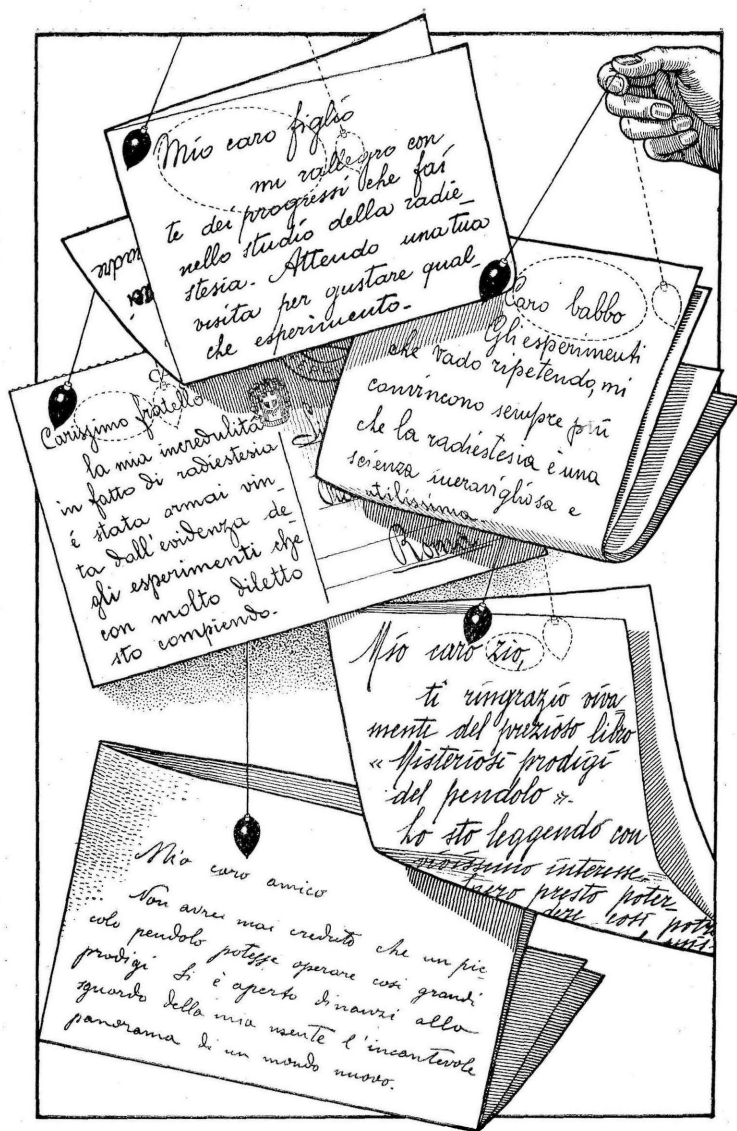 Mio caro figlio
mi rallegro con
te dei progressi che fai
nello studio della radie_
stesia. Attendo una tua
visita per gustare qual_
che esperimento.
Caro babbo
Gli esperimenti
che vado ripetendo, mi
convincono sempre più
che la radiestesia è una
scienza meravigliosa e
utilissima
Carissimo fratello
la mia incredulità
in fatto di radiestesia
è stata ormai vin_
ta dall'evidenza de_
gli esperimenti che
con molto diletto
sto compiendo.
Roma
Mio caro zio,
ti ringrazio viva
mente del prezioso libro
« Misteriosi prodigi
del pendolo ».
Lo sto leggendo con
vivissimo interesse
presto poter_
così
Mio caro amico
Non avrei mai creduto che un pic_
colo pendolo potesse operare così grandi
prodigi Si è aperto dinanzi alla
sguardo della mia mente l'incantevole
panorama di un mondo nuovo.